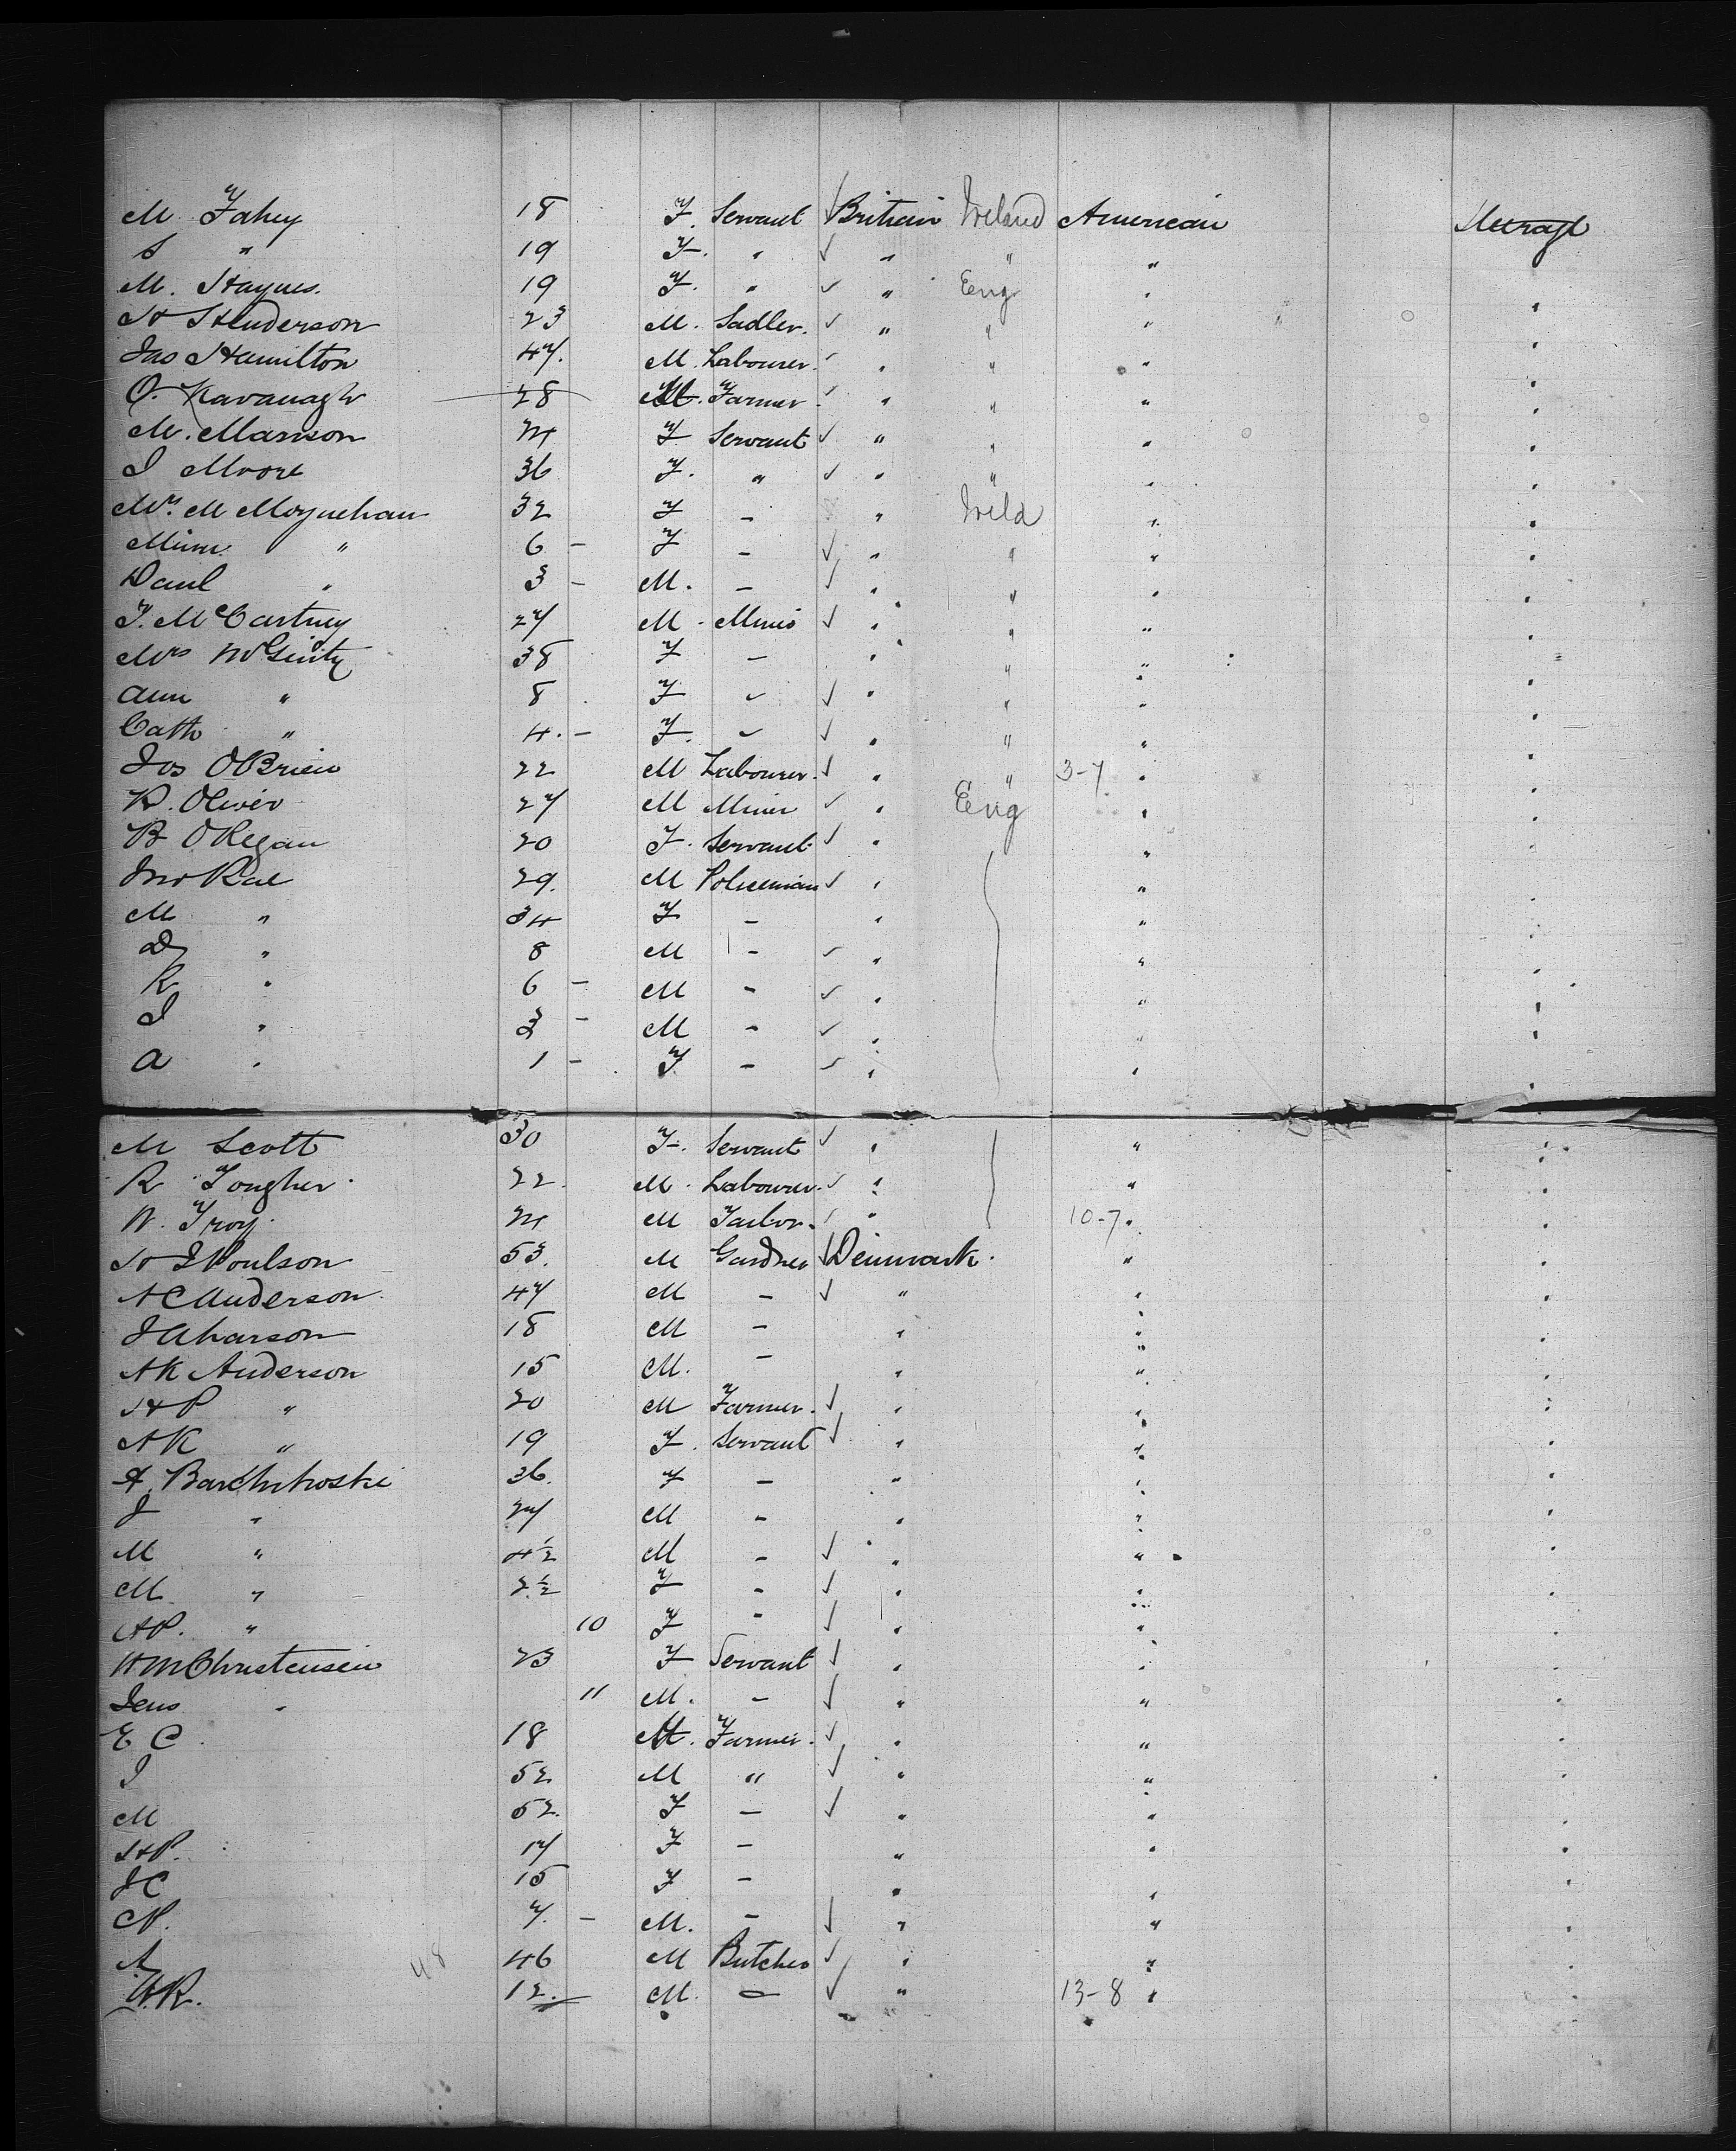 M Fahey 18 F. Servant Britain Ireland American Steerage
S " 19 F. " " " "
M. Haynes. 19 F. " " Eng "
H Henderson 23 M. Sadler. " " "
Jas Hamilton 47. M. Labourer. " " "
O. Kavanagh 28 M. Farmer " " "
M. Marrison F Servant " " "
J Moore 36 F. " " " "
Mrs. M Moynehan 32 F - " Ireld "
Minn. " 6 - F - " " "
Danl " 3 - M. - " " "
T. McCartney 27 M - " " "
Mrs McGinty 38 F - " " "
Ann " 8 F " " "
Cath " 4. - F. " " "
Jos OBrien 22 M Labourer. " " 3-7 "
R. Oliver 27 M Miner " Eng "
B ORegan 20 F. Servant " "
Jno Rae 29. M Policeman " "
M " 34 F - " "
D " 8 M - " "
R " 6 - M - " "
J " 3 - M - " "
A " 1 - F - " "
M Scott 30 F. Servant " "
R Tougher 22 M. Labourer. " "
W. Troy. M Tailor. " 10-7 "
H J Poulson 53. M Gardner Denmark. "
A C Anderson 47 M - " "
18 M - " "
A K Anderson 15 M. - " "
H P " 20 M Farmer. " "
A K " 19 F. Servant " "
A. 36. F - " "
J " 27 M - " "
M " 4½ M - " "
M " 2½ F - " "
A P. " 10 F - " "
Christensen 23 F Servant " "
Jens " 11 M. - " "
E C 18 M. Farmer. " "
J 52 M " " "
M 52. F - " "
H P. 17 F - " "
J C 15 F - " "
C P. 7. - M. - " "
A 48 46 M Butcher " "
H. R. 12. M. - " 13-8 "